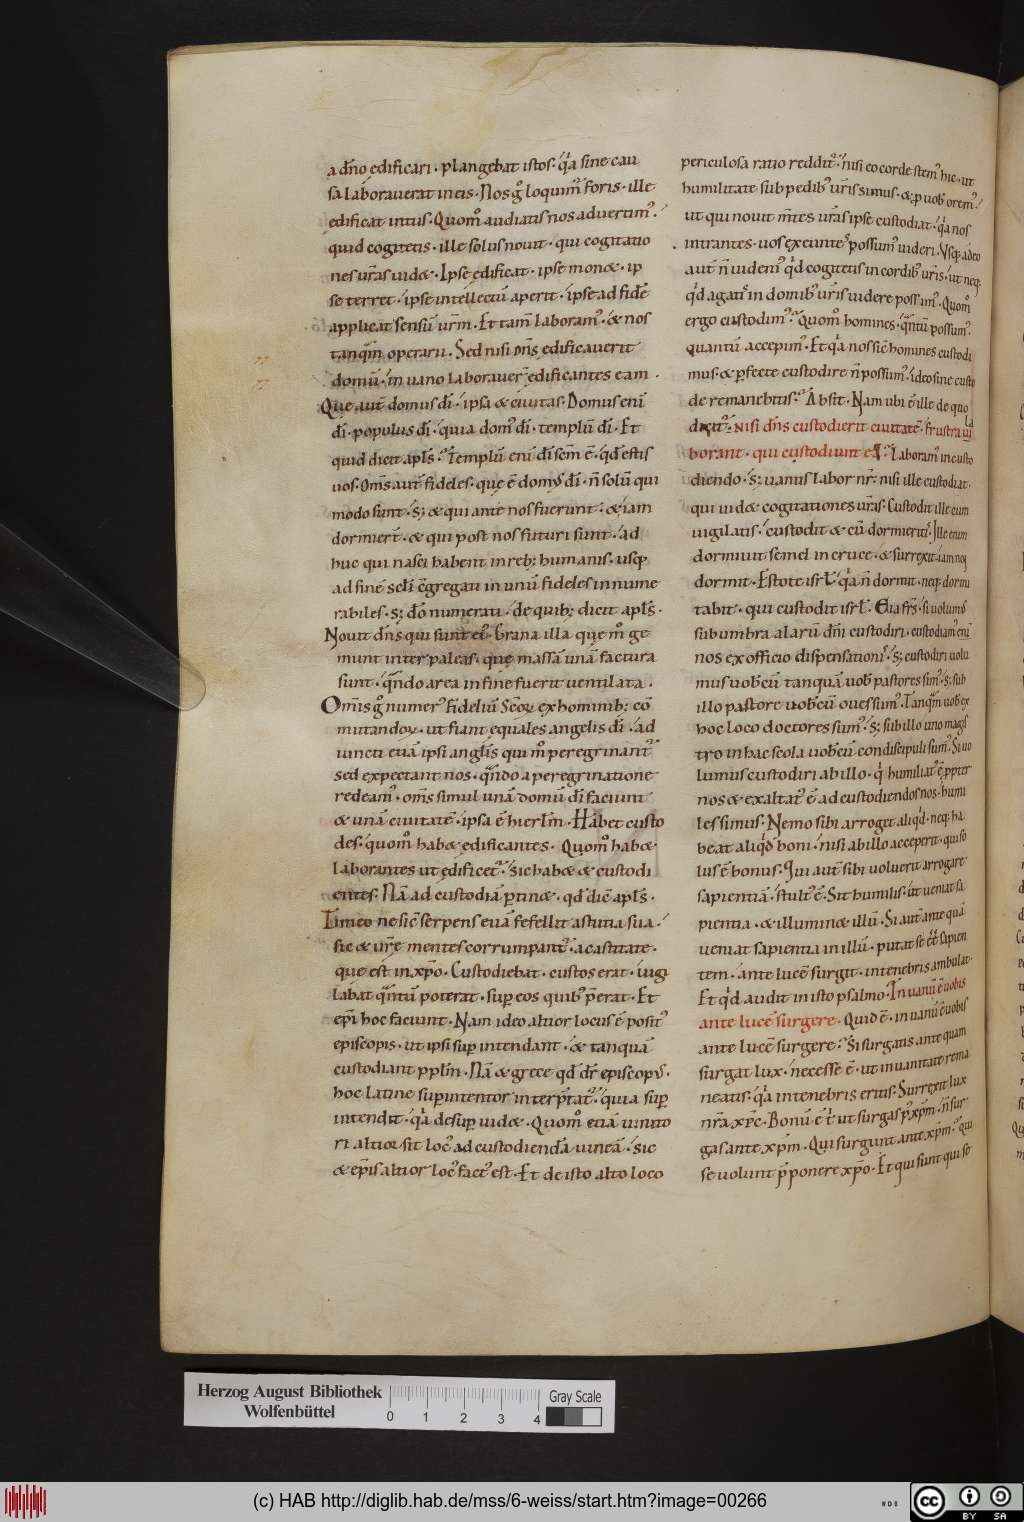 a dño edificari · plangebat istos · q̇a sine cau
sa laborauerat in eis · Nos g̊ loquimᷣ foris · ille
edificat intus · Quom̊ audiatis nos aduertimᷣ ·
quid cogitetis · ille solus nouit · qui cogitatio
nes ur̃as uidet · Ipse edificat · ipse monet · ip
se terret · ipse intellectũ aperit · ipse ad fidẽ
applicat sensũ ur̃m · Et tam̃ laboramᷣ · & nos
tanq̃m operarii · Sed nisi dñs edificauerit
domũ · in uano laborauer̃ edificantes eam ·
Que aut̃ domus dĩ · ipsa & ciuitas · Domus enĩ
dĩ · populus dĩ · quia domᷣ dĩ · templũ dĩ · Et
quid dicit apl̃s · Templũ enĩ dĩ sc̃m ẽ · qḋ estis
uos · Om̃s aut̃ fideles · que ẽ domᷣ dĩ · ñ solũ qui
modo sunt · s; & qui ante nos fuerunt · & iam
dormier̃t · & qui post nos futuri sunt · ad
huc qui nasci habent in reb; humanis · usq;
ad finẽ sc̃li c̃gregati in unũ fideles innume
rabiles · s; dõ numerati · de quib; dicit apl̃s ·
Nouit dñs qui sunt eiᷣ · Grana illa que m̊ ge
munt inter paleas · que massã unã factura
sunt · q̃ndo area in fine fuerit uentilata ·
Omĩs g̊ numerᷣ fideliũ scõꝝ ex hominib; cõ
mutandoꝝ · ut fiant equales angelis dĩ · ad
iuncti etiã ipsi angl̃is qui m̊ peregrinantᷣ
sed expectant nos · q̃ndo a peregrinatione
redeamᷣ · om̃s simul unã domũ dĩ faciunt
& unã ciuitatẽ · ipsa ẽ hierl̃m · Habet custo
des · quom̊ habet edificantes · Quom̊ habet
laborantes ut edificetᷣ · sic habet & custodi
entes · Nã ad custodiã ꝑtinet · qd̃ dic̃ apl̃s ·
Timeo ne sic̃ serpens euã fefellit astutia sua ·
sic & ur̃e mentes corrumpantᷣ a castitate ·
que est in xp̃o · Custodiebat · custos erat · uigi
labat q̃ntũ poterat · suꝑ eos quibᷣ p̃erat · Et
epĩ hoc faciunt · Nam ideo altior locus ẽ positᷣ
episcopis · ut ipsi suꝑ intendant · & tanquã
custodiant ppl̃m · Nã & grece qd̃ dr̃ episcopᷣ ·
hoc latine suꝑintentor interp̃tatᷣ · quia suꝑ
intendit · q̇a desuꝑ uidet · Quom̊ etiã uinito
ri altior fit locᷣ ad custodiendã uineã · sic
& ep̃is altior locᷣ factᷣ est · Et de isto alto loco
periculosa ratio redditᷣ · nisi eo corde stemᷣ hic · ut
humilitate sub pedibᷣ ur̃is simus · & ꝓ uob̃ oremᷣ ·
ut qui nouit m̃tes ur̃as ipse custodiat · q̇a nos
intrantes · uos exeuntes possumᷣ uideri · Vsq; adeo
aut̃ ñ uidemᷣ qḋ cogitetis in cordibᷣ ur̃is · ut neq;
qḋ agatis in domibᷣ ur̃is uidere possimᷣ · Quom̊
ergo custodimᷣ · Quom̊ homines · q̃ntũ possumᷣ ·
quantũ accepimᷣ · Et q̇a nos sic̃ homines custodi
mus · & ꝑfecte custodire ñ possumᷣ · ideo sine custo
de remanebitis · Absit · Nam ubi ẽ ille de quo
dicitᷣ · nisi dñs custodierit ciuitatẽ · frustra ui
borant · qui custodiunt eã · Laboramᷣ in custo
diendo · s; uanus labor nr̃ · nisi ille custodiat ·
qui uidet cogitationes ur̃as · Custodit ille cum
uigilatis · custodit & cũ dormieritis · Ille enim
dormiuit semel in cruce · & surrexit · iam non
dormit · Estote isrl̃ · q̇a ñ dormit · neq; dormi
tabit · qui custodit isrl̃ · Eia fr̃s · si uolumᷣ
sub umbra alarũ dñi custodiri · custodiamᷣ enĩ
nos ex officio dispensationis · s; custodiri uolu
mus uob̃cũ tanquã uob̃ pastores simᷣ · s; sub
illo pastore uob̃cũ oues sumᷣ · Tanq̃m uob̃ ex
hoc loco doctores sumᷣ · s; sub illo uno magis
tro in hac scola uob̃cũ condiscipuli sumᷣ · Si uo
lumus custodiri ab illo · q̇ humiliatᷣ ẽ ꝓpter
nos & exaltatᷣ ẽ ad custodiendos nos · humi
les simus · Nemo sibi arroget aliqḋ · neq; ha
beat aliqḋ boni · nisi ab illo acceperit · qui so
lus ẽ bonus · Qui aut̃ sibi uoluerit arrogare
sapientiã · stultᷣ ẽ · Sit humilis · ut ueniat sa
pientia · & illuminet illũ · Si aut̃ ante quã
ueniat sapientia in illũ · putat se ẽẽ sapien
tem · ante lucẽ surgit · in tenebris ambulat ·
Et qḋ audit in isto psalmo · In uanũ ẽ uobis
ante lucẽ surgere · Quid ẽ · in uanũ ẽ uobis
ante lucẽ surgere · Si surgatis ante quam
surgat lux · necesse ẽ · ut in uanitate rema
neatis · q̇a in tenebris eritis · Surrexit lux
nr̃a xp̃c · Bonũ ẽ t̊ ut surgas p̃ xp̃m · ñ sur
gas ante xp̃m · Qui surgunt ante xp̃m · qui
se uolunt p̃ponere xp̃o · Et qui sunt qui se
Herzog August Bibliothek
Wolfenbüttel
0 1 2 3 4
Gray Scale
(c) HAB http://diglib.hab.de/mss/6-weiss/start.htm?image=00266
WDB
cc
BY SA